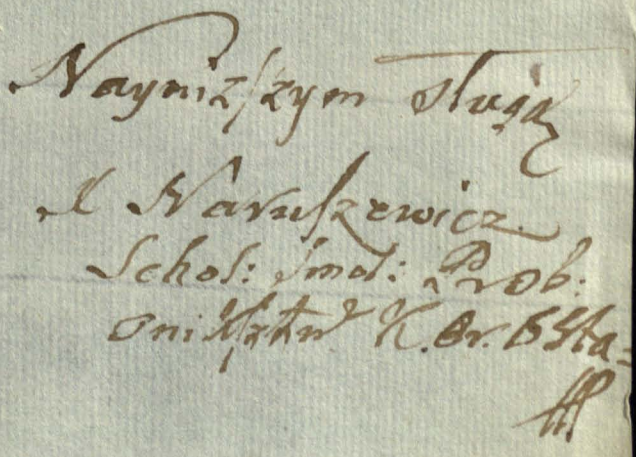 Nayniższym sługą
A Naruszewicz.
Schol: Smol: Prob:
K. Or. S Sta=